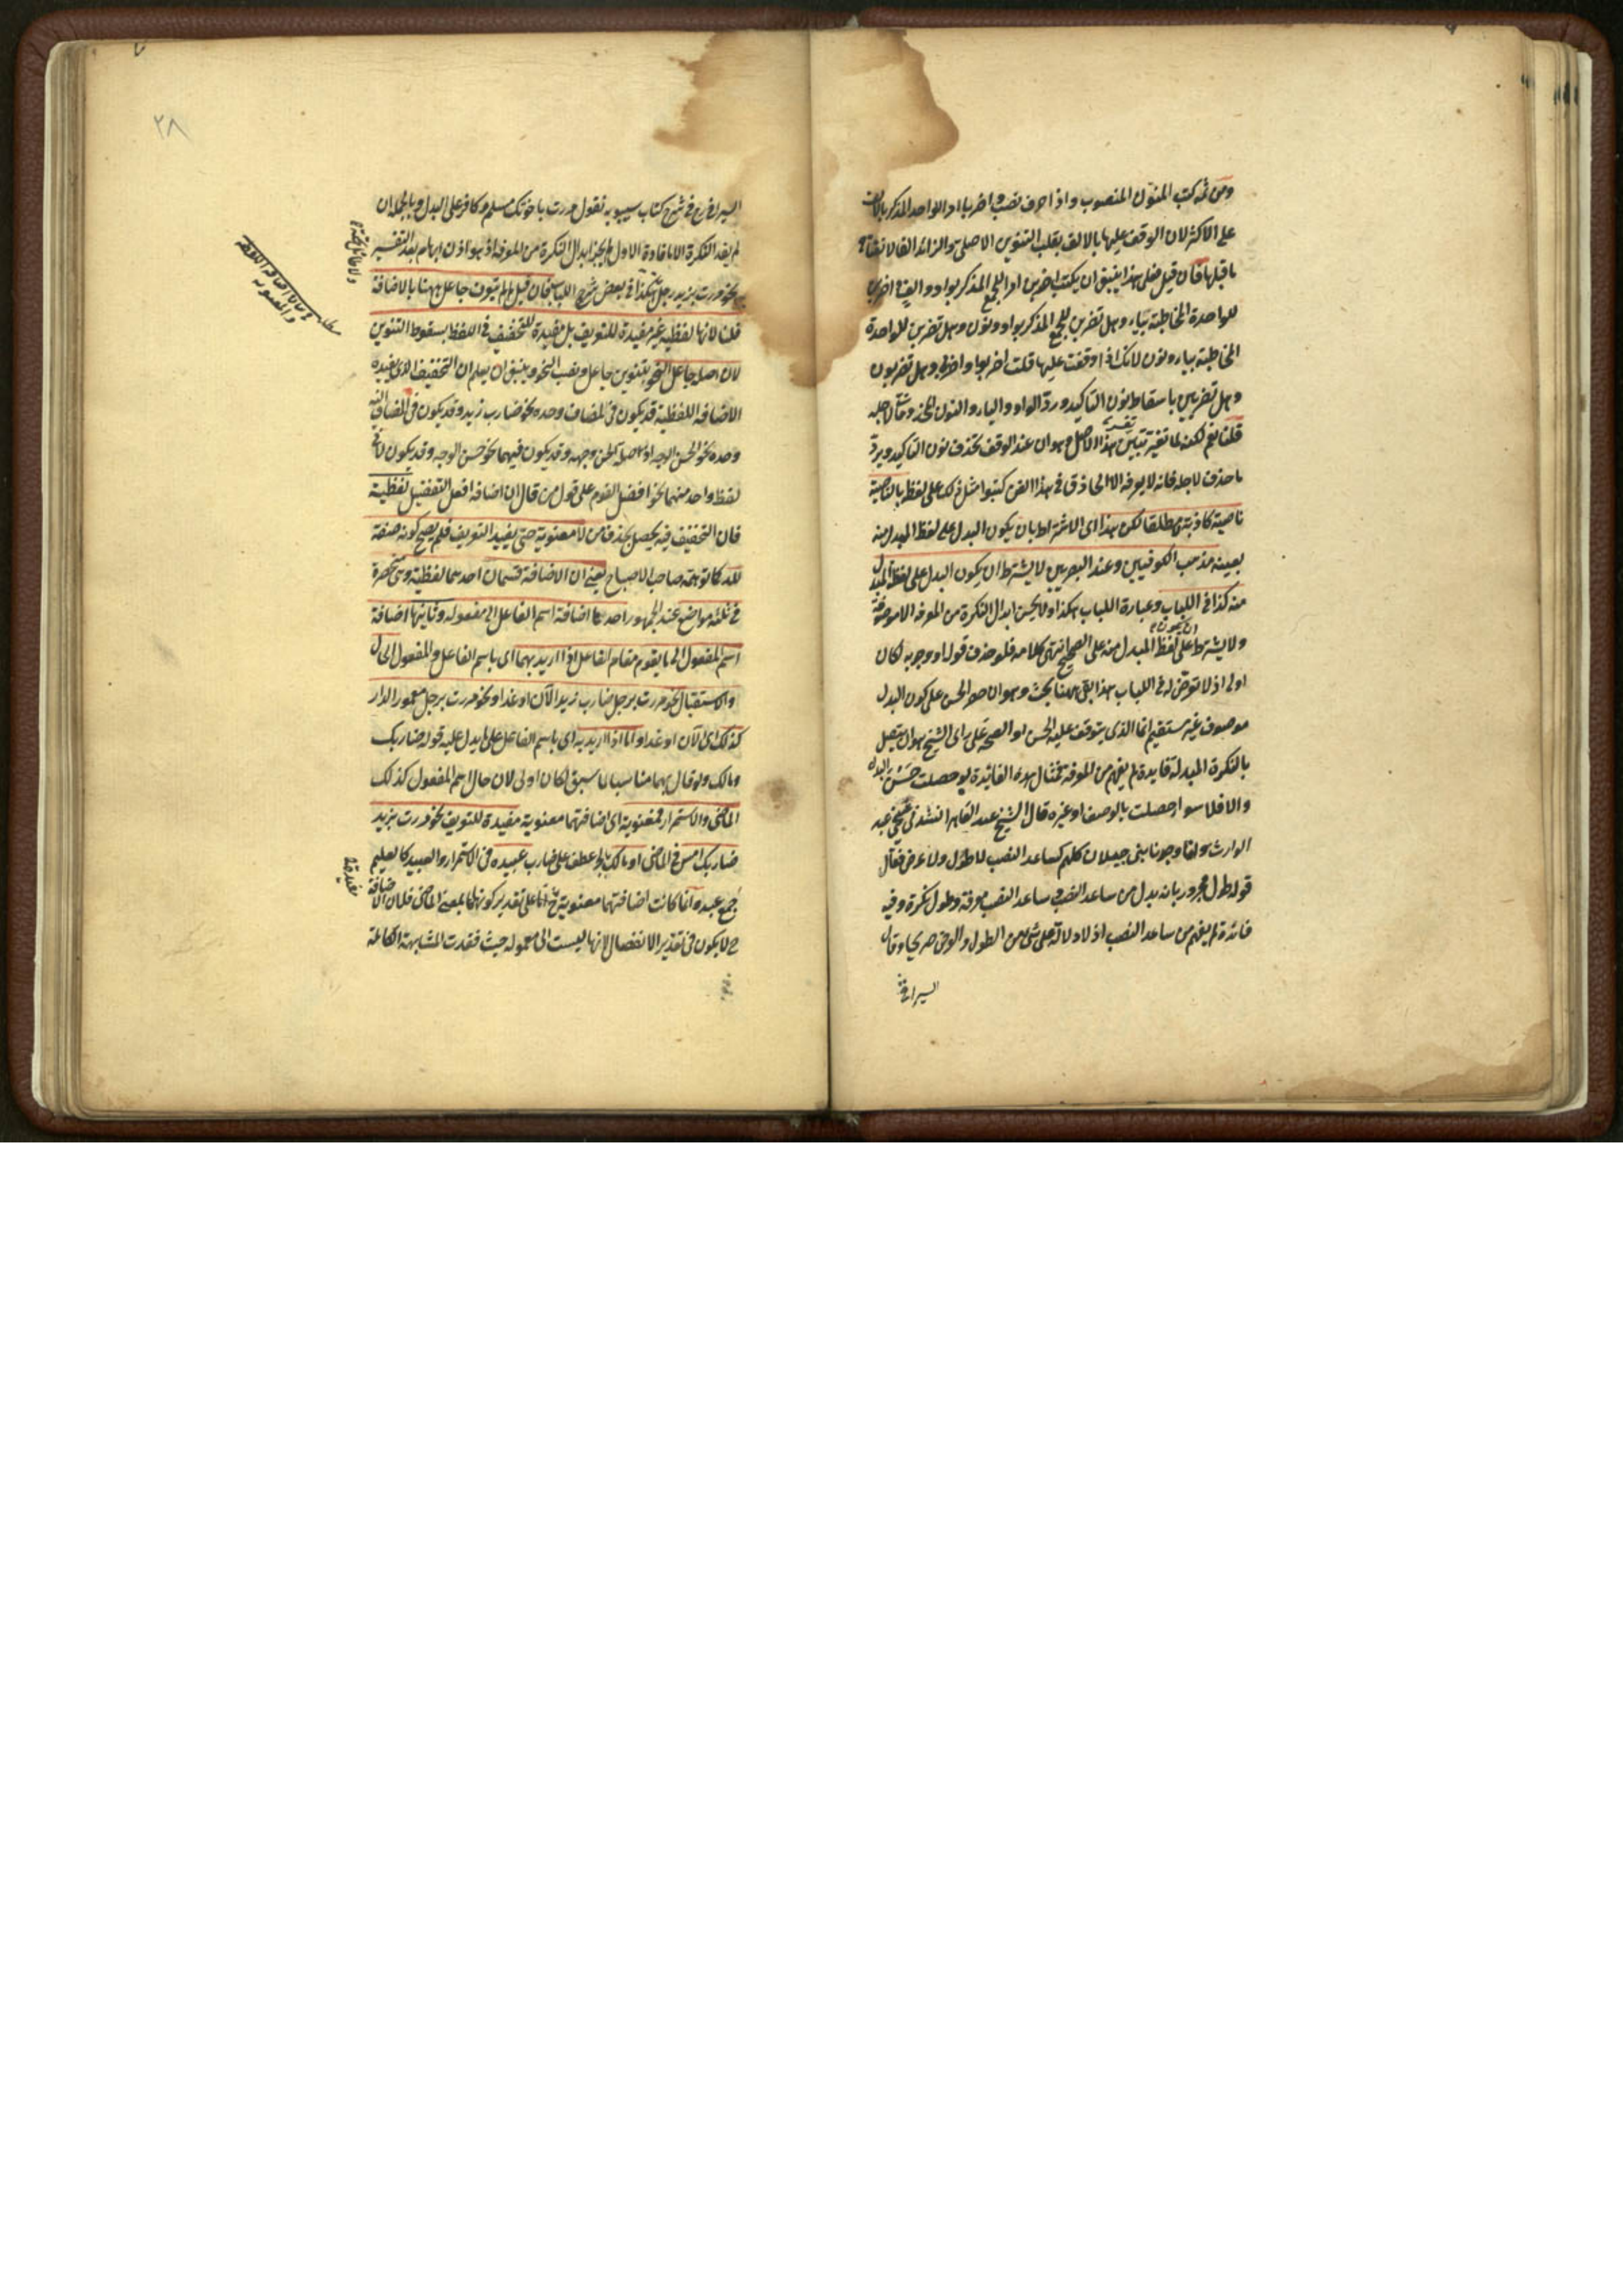 ومن ثمه كتب المنون المنصوب واذا حرف نصب واضربا امر الواحد المذكر بالالف
على الاكثر لان الوقف عليها بالالف بقلب التنوين الاصلي والزائد الفا لانفتاح
ما قبلها فان قيل فعلى هذا ينبغي ان يكتب اضربن امر الجمع المذكر بواو والف واضربن
للواحدة المخاطبة بياء وهل تضربن للجمع المذكر بواو ونون وهل تضربن للواحدة
المخاطبة بياء ونون لانك اذا وقفت عليها قلت اضربوا واضربي وهل تضربون
وهل تضربين باسقاط نون التاكيد ورد الواو والياء والنون
قلنا نعم لكنه لما تعسر تبين هذا الاصل وهو ان عند الوقف تحذف نون التاكيد ويرد
ما حذف لاجله فانه لا يعرفه الا الحاذق في هذا الفن كتبوا مثل ذلك على لفظ بالناصية
ناصية كاذبة مطلقا لكن هذا اى الاشتراط بان يكون البدل على لفظ المبدل منه
بعينه مذهب الكوفيين وعند البصريين لا يشترط ان يكون البدل على لفظ المبدل
منه كذا في اللباب وعبارة اللباب هكذا ولا يحسن ابدال النكرة من المعرفة الا موصوفة
ولا يشترط ان يكون على لفظ المبدل منه على الصحيح انتهى كلامه فلو حذف قوله او وجوبه لكان
اولى اذ لا تعرض له في اللباب هذا بقى ههنا بحث وهو ان حصر الحسن على كون البدل
موصوف غير مستقيم انما الذي يتوقف عليه الحسن او الصحة على راى الشيخ هو ان يتصل
بالنكرة المبدلة فايدة لم يفهم من المعرفة فمتى هذه الفائدة لو حصلت حسن البدل
والا فلا سواء حصلت بالوصف او غيره قال الشيخ عبد القاهر انشدني شيخي عبد
الوارث ولقا وجونا بنى جيلان كلهم كساعد الضب لا طول ولا عرض فقال
قوله طول مجرور بانه بدل من ساعد الضب وساعد الضب معرفة وطول نكرة وفيه
فائدة لم يفهم من ساعد الضب اذ لا دلالة على شئ من الطول والعرض صريحا وقال
السيرافي
٢٨
السيرافي رح في شرح كتاب سيبويه تقول مررت باخوتك مسلم وكافر على البدل وبالجملة ان
لم يفد النكرة الا ما فاده الاول لم يجز ابدال النكرة من المعرفة اذ هو اذن ابهام بعد التفسير
نحو مررت بزيد رجل هكذا في بعض شرح اللباب فان قيل لم لم يتعرف جاعل ههنا بالاضافة
قلنا لانها لفظية غير مفيدة للتعريف بل مفيدة للتخفيف في اللفظ بسقوط التنوين
لان اصله جاعل النحو بتنوين جاعل ونصب النحو وينبغي ان يعلم ان التخفيف الذي يفيده
الاضافة اللفظية قد يكون في المضاف وحده نحو ضارب زيد وقد يكون في المضاف اليه
وحده نحو الحسن الوجه اذ اصله الحسن وجهه وقد يكون فيهما نحو حسن الوجه وقد يكون لا في
لفظ واحد منهما نحو افضل القوم على قول من قال ان اضافة افعل التفضيل لفظية
فان التخفيف فيه يحصل بحذف من لا معنوية حتى يفيد التعريف فلم يصح كونه صفة
لله كما توهمه صاحب الاصباح يعني ان الاضافة قسمان احدهما لفظية وهى منحصرة
في ثلثة مواضع عند الجمهور احدها اضافة اسم الفاعل الى مفعوله وثانيها اضافة
اسم المفعول الى ما يقوم مقام الفاعل اذا اريد بهما اى باسم الفاعل والمفعول الحال
والاستقبال نحو مررت برجل ضارب زيد الآن او غدا ونحو مررت برجل معمور الدار
كذلك اى الآن او غدا واما اذا اريد به اى باسم الفاعل على ما يدل عليه قوله ضاربك
ومالك ولو قال بهما مناسبا لما سبق لكان اولى لان حال اسم المفعول كذلك
الماضي والاستمرار فمعنوية اى اضافتهما معنوية مفيدة للتعريف نحو مررت بزيد
ضاربك امس في الماضي او مالك بالجر عطف على ضارب عبيده في الاستمرار والعبيد كالعليم
جمع عبد وانما كانت اضافتهما معنوية ح اما على تقدير كونهما بمعنى الماضي فلان الاضافة
ح لا يكون في تقدير الانفصال لانها ليست الى معموله حيث فقدت المشابهة الكاملة